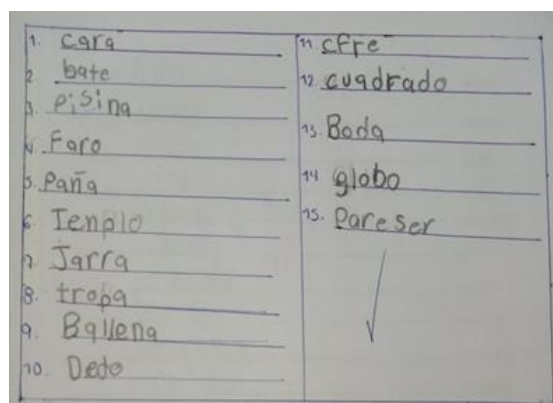 1. cara
2. bate
3. pisina
4. Faro
5. Paña
6. Tenplo
7. Jarra
8. tropa
9. Ballena
10. Dedo
11 cfre
12. cuadrado
13. Boda
14 globo
15. Pareser